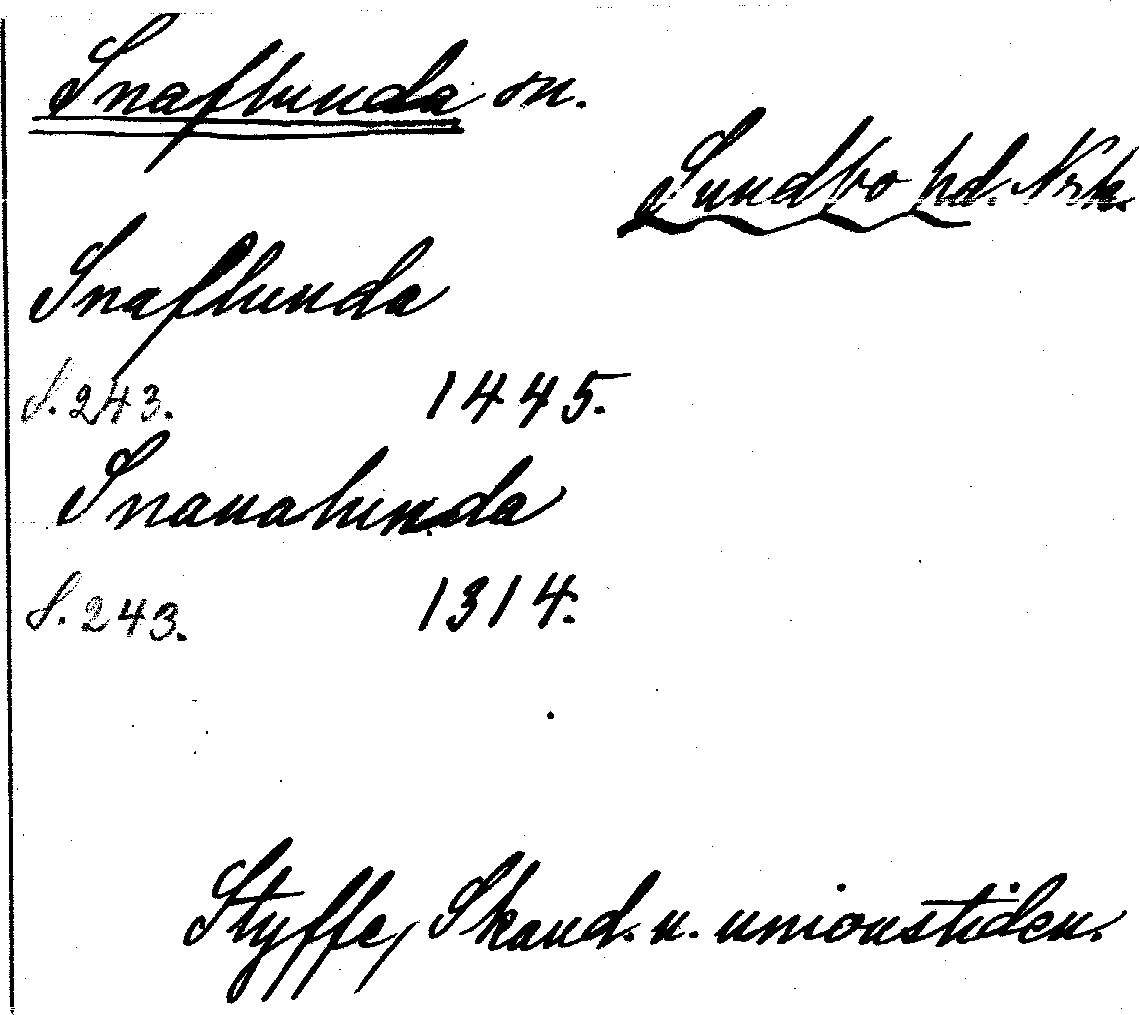 Snaflunda sn.
Sundbo hd. Nrk.
Snaflunda
S. 243. 1445.
Snaualunda
S. 243. 1314.
Styffe, Skand. u. unionstiden.